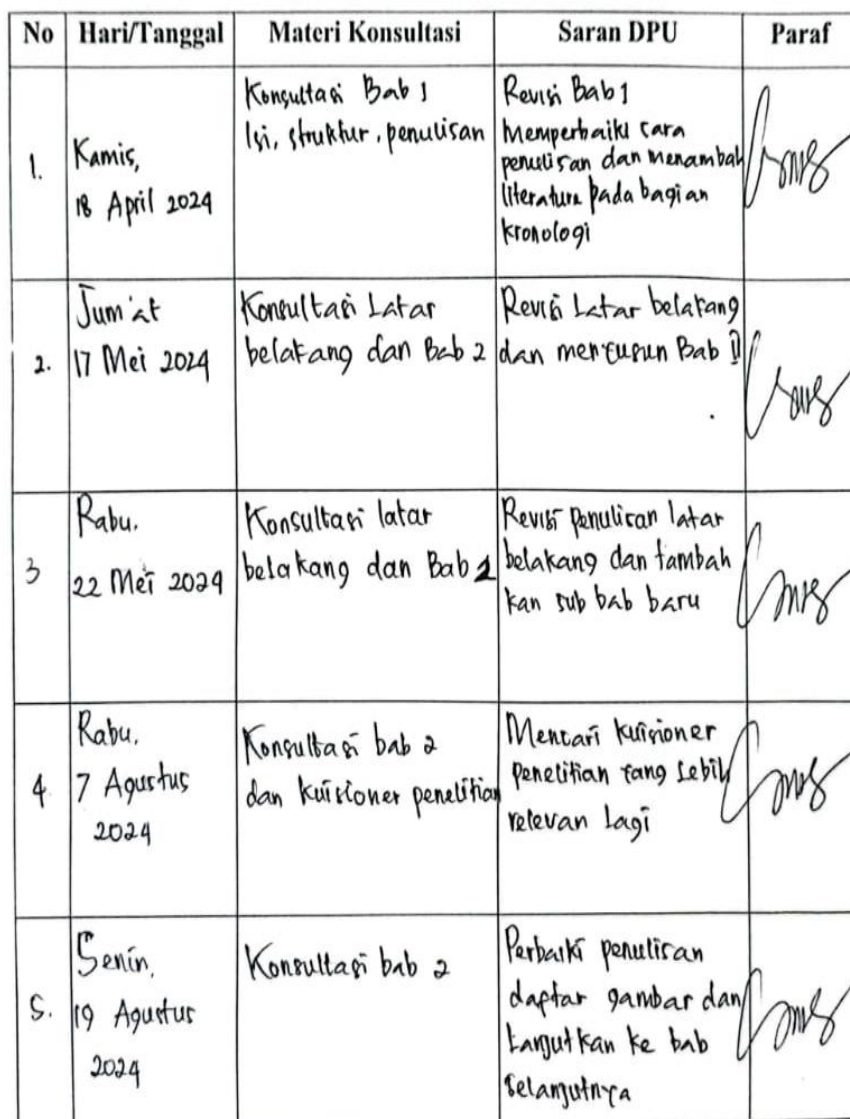 No Hari/Tanggal Materi Konsultasi Saran DPU Paraf
1.
Kamis,
18 April 2024
Konsultasi Bab 1
Isi, struktur, penulisan
Revisi Bab 1
Memperbaiki cara
penulisan dan menambah
literature pada bagian
kronologi
2.
Jum'at
17 Mei 2024
Konsultasi Latar
belakang dan Bab 2
Revisi Latar belakang
dan menyusun Bab II
3
Rabu,
22 Mei 2024
Konsultasi latar
belakang dan Bab 2
Revisi penulisan latar
belakang dan tambah
kan sub bab baru
4
Rabu,
7 Agustus
2024
Konsultasi bab 2
dan kuisioner penelitian
Mencari kuisioner
penelitian yang Lebih
relevan Lagi
5.
Senin,
19 Agustus
2024
Konsultasi bab 2
Perbaiki penulisan
daftar gambar dan
Lanjutkan ke bab
selanjutnya